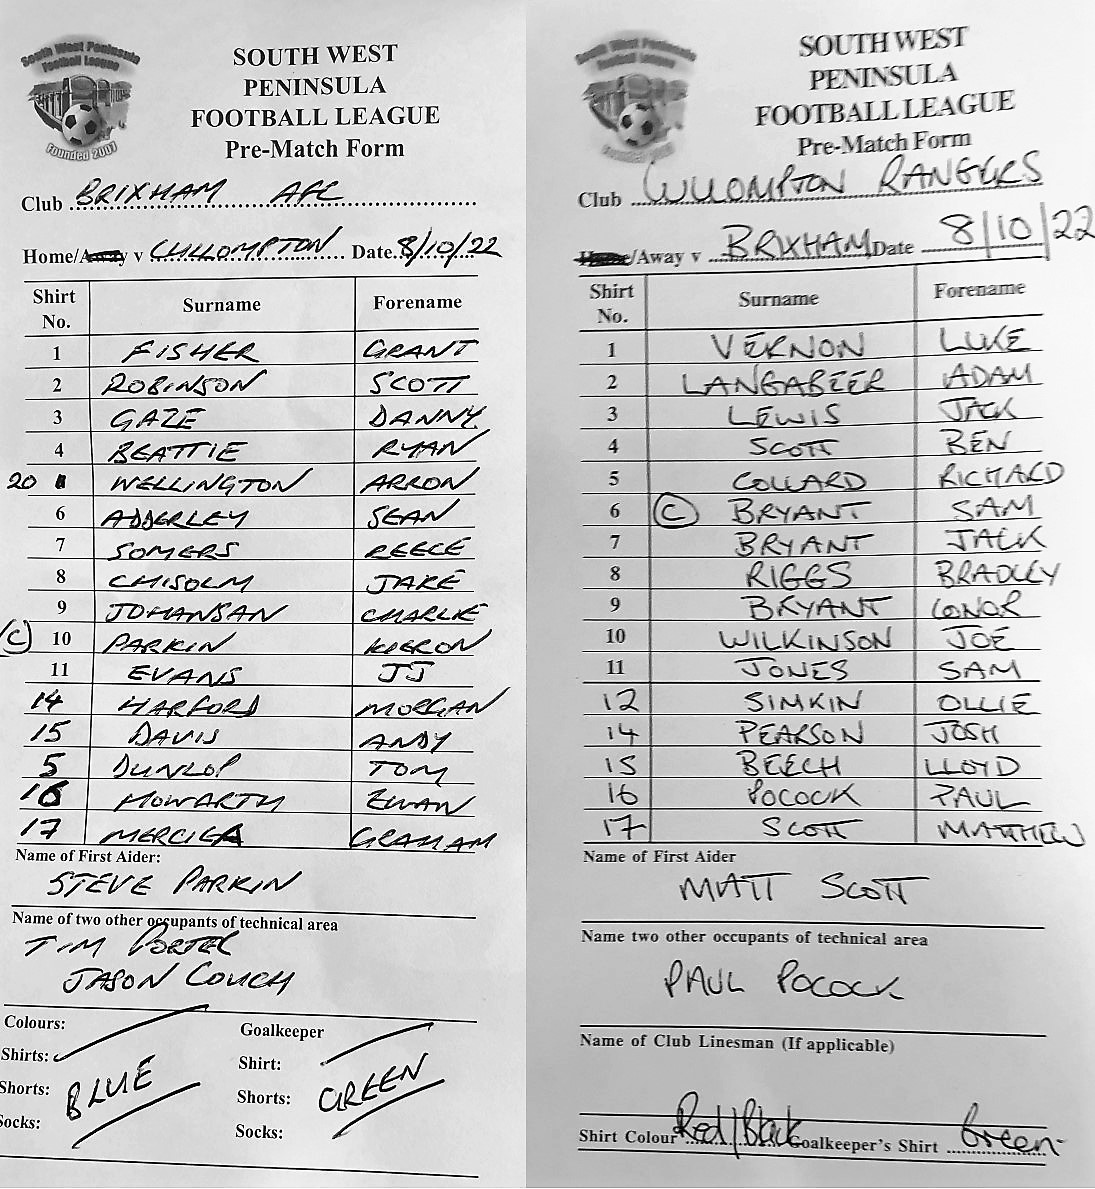 South West Peninsula
Football League
Founded 2007
SOUTH WEST
PENINSULA
FOOTBALL LEAGUE
Pre-Match Form
Club BRIXHAM AFC
Home/Away v CULLOMPTON Date 8/10/22
Shirt No. Surname Forename
1 FISHER GRANT
2 ROBINSON SCOTT
3 GAZE DANNY
4 BEATTIE RYAN
20 WELLINGTON ARRON
6 ADDERLEY SEAN
7 SOMERS REECE
8 CHISOLM JAKE
9 JOHANSAN CHARLIE
(C) 10 PARKIN KIERON
11 EVANS JJ
14 HARFORD MORGAN
15 DAVIS ANDY
5 DUNLOP TOM
16 HOWARTH EWAN
17 MERCIER GRAHAM
Name of First Aider:
STEVE PARKIN
Name of two other occupants of technical area
TIM PORTER
JASON COUCH
Colours: Goalkeeper
Shirts: Shirt:
Shorts: BLUE Shorts: GREEN
Socks: Socks:
South West Peninsula
Football League
SOUTH WEST
PENINSULA
FOOTBALL LEAGUE
Pre-Match Form
Club CULLOMPTON RANGERS
Home/Away v BRIXHAM Date 8/10/22
Shirt No. Surname Forename
1 VERNON LUKE
2 LANGABEER ADAM
3 LEWIS JACK
4 SCOTT BEN
5 COLLARD RICHARD
6 (C) BRYANT SAM
7 BRYANT JACK
8 RIGGS BRADLEY
9 BRYANT CONOR
10 WILKINSON JOE
11 JONES SAM
12 SIMKIN OLLIE
14 PEARSON JOSH
15 BEECH LLOYD
16 POCOCK PAUL
17 SCOTT MATTHEW
Name of First Aider
MATT SCOTT
Name two other occupants of technical area
PAUL POCOCK
Name of Club Linesman (If applicable)
Shirt Colour Red/Black Goalkeeper's Shirt Green